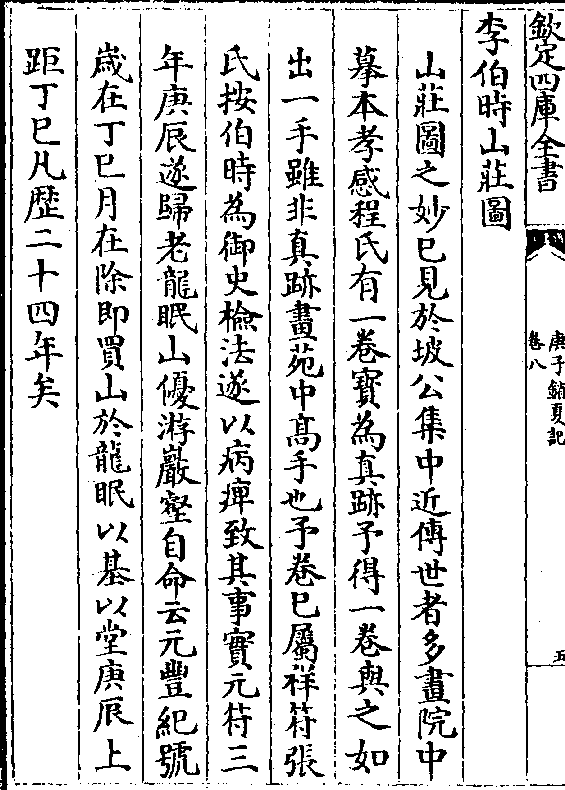 欽定四庫全書
庚子銷夏記
卷八
五
李伯時山莊圖
山莊圖之妙已見於坡公集中近傳世者多畫院中
摹本孝感程氏有一卷寶為真跡予得一卷與之如
出一手雖非真跡畫苑中髙手也予卷已屬祥符張
氏按伯時為御史檢法遂以病痺致其事實元符三
年庚辰遂歸老龍眠山優游巖壑自命云元豐紀號
歳在丁巳月在除即買山於龍眠以基以堂庚辰上
距丁巳凡歴二十四年矣